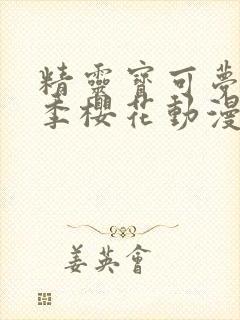 精靈寶可夢
季櫻花動漫
姜英會